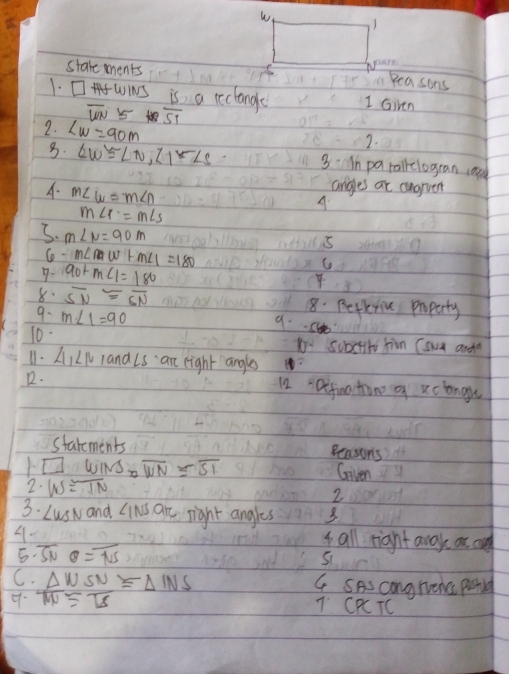 W I
S N
Statements Reasons
1. □ WINS is a rectangle 1 Given
WN ≅ SI
2. ∠W = 90m 2.
3. ∠W ≅ ∠N, ∠I ≅ ∠S. 3. In parallelogram
angles are congruent
4. m∠W = m∠n 4
m∠I = m∠s
5. m∠N = 90m 5
6 - m∠W + m∠I = 180 6
7. 90 + m∠I = 180 7
8. SN ≅ SN 8. Reflexive Property
9. m∠I = 90 9.
10. 10. Substitution (SN4 and
11. ∠I, ∠N, and ∠S are right angles 11.
12. 12 - Definition of rectangle
Statements Reasons
1. □ WINS WN ≅ SI Given
2. WS ≅ IN 2
3. ∠WSN and ∠INS are right angles 3.
4. 4 all right angle are
5. SN = NS 5.
6. △WSN ≅ △INS 6 SAS Congruence
7. WN ≅ IS 7 CPCTC